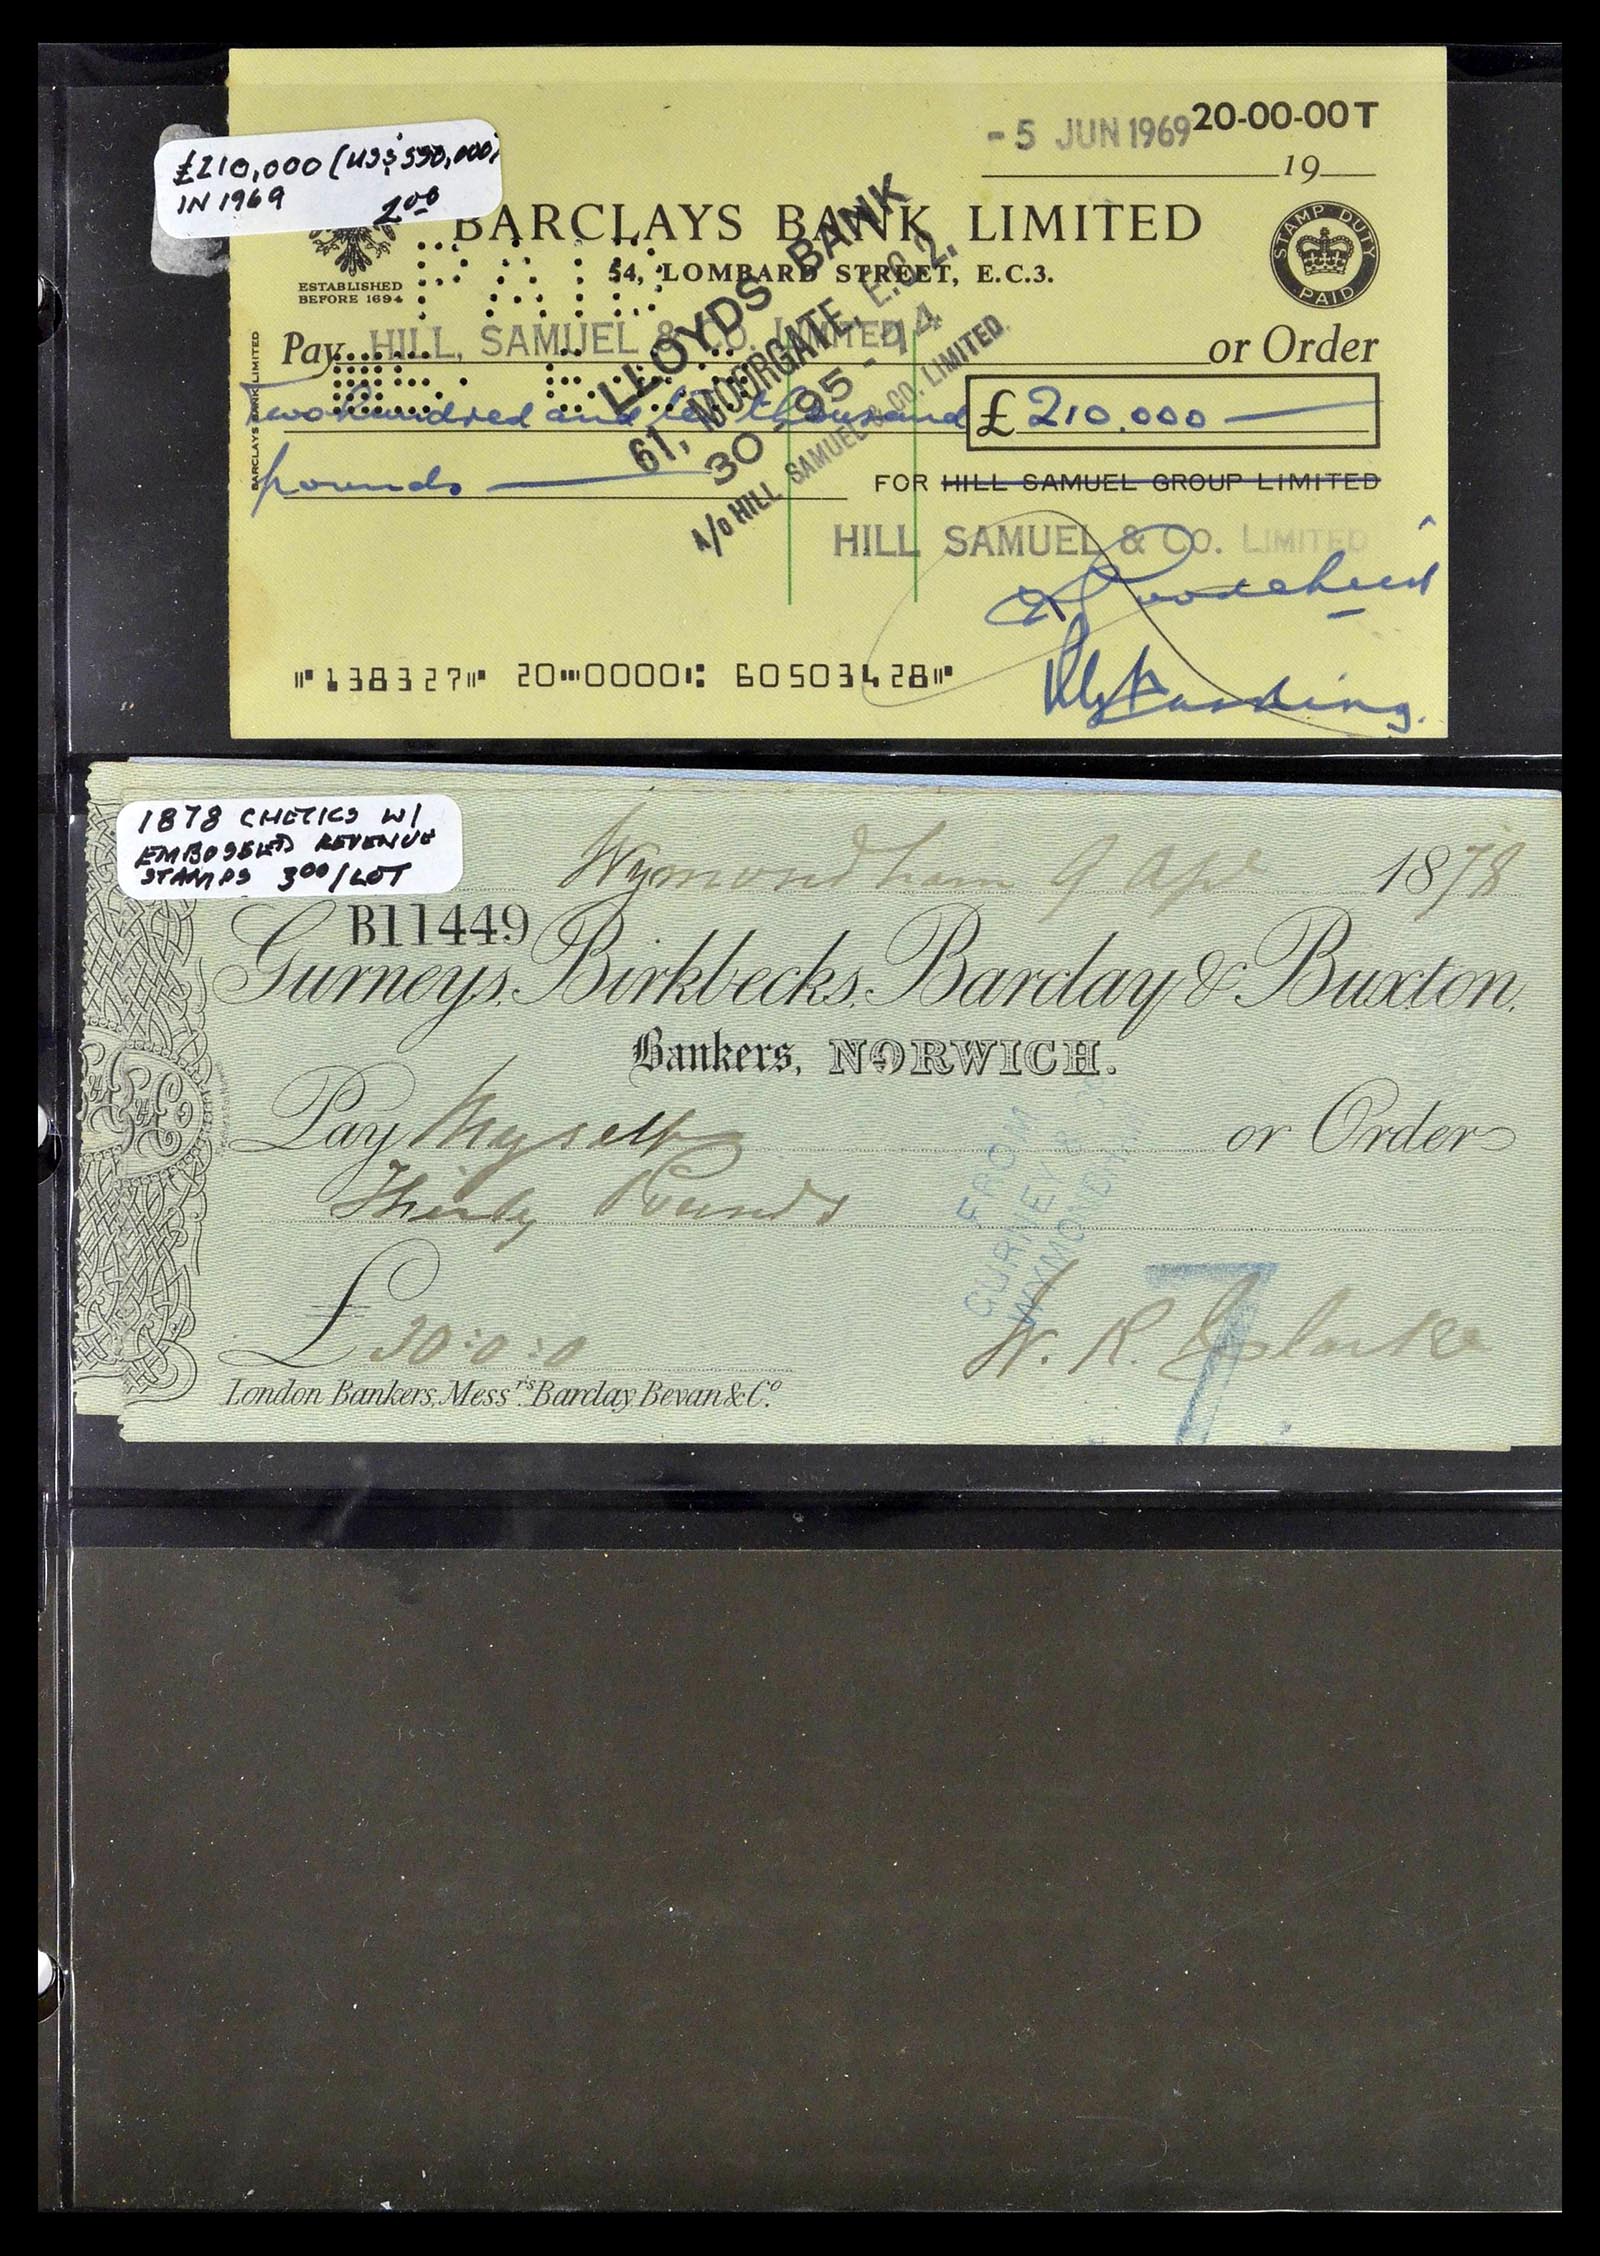 £210,000 (US$ 550,000)
IN 1969
2.00
- 5 JUN 1969
20-00-00T
19
BARCLAYS BANK LIMITED
54, LOMBARD STREET, E.C.3.
ESTABLISHED
BEFORE 1694
STAMP DUTY
PAID
BARCLAYS BANK LIMITED
Pay HILL, SAMUEL & CO. LIMITED or Order
Two hundred and ten thousand
£ 210.000
pounds
FOR HILL SAMUEL GROUP LIMITED
HILL SAMUEL & CO. LIMITED
LLOYDS BANK
61, MOORGATE, E.C.2.
30-95-14
A/o HILL SAMUEL & CO. LIMITED.
PAID
138327 20 0000 60503428
1878 CHECKS W/
EMBOSSED REVENUE
STAMPS 3.00/LOT
Wymondham 9 Apl 1878
B11449
Gurneys, Birkbecks, Barclay & Buxton,
Bankers, NORWICH.
Pay Myself or Order
Thirty Pounds
FROM
GURNEY & CO
WYMONDHAM
£ 30:0:0
W. R. Clarke
7
London Bankers, Messrs. Barclay Bevan & Co.